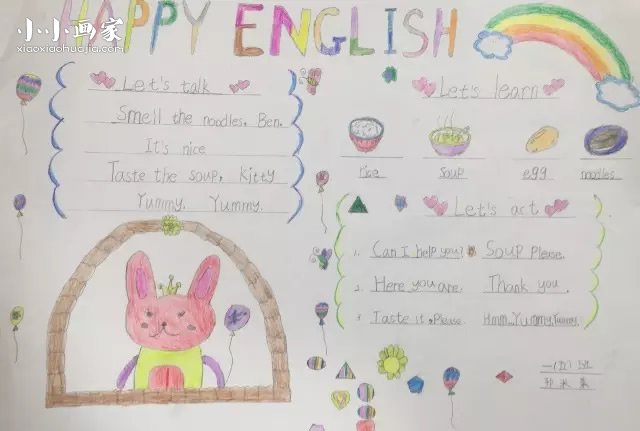 HAPPY ENGLISH
小小画家
xiaoxiaohuajia.com
Let's talk
Smell the noodles, Ben.
It's nice
Taste the soup, kitty
Yummy, Yummy.
Let's learn
rice soup egg noodles
Let's act
1. Can I help you? Soup Please.
2. Here you are. Thank you.
3 Taste it, Please. Hmm...Yummy,Yummy.
一(五)班